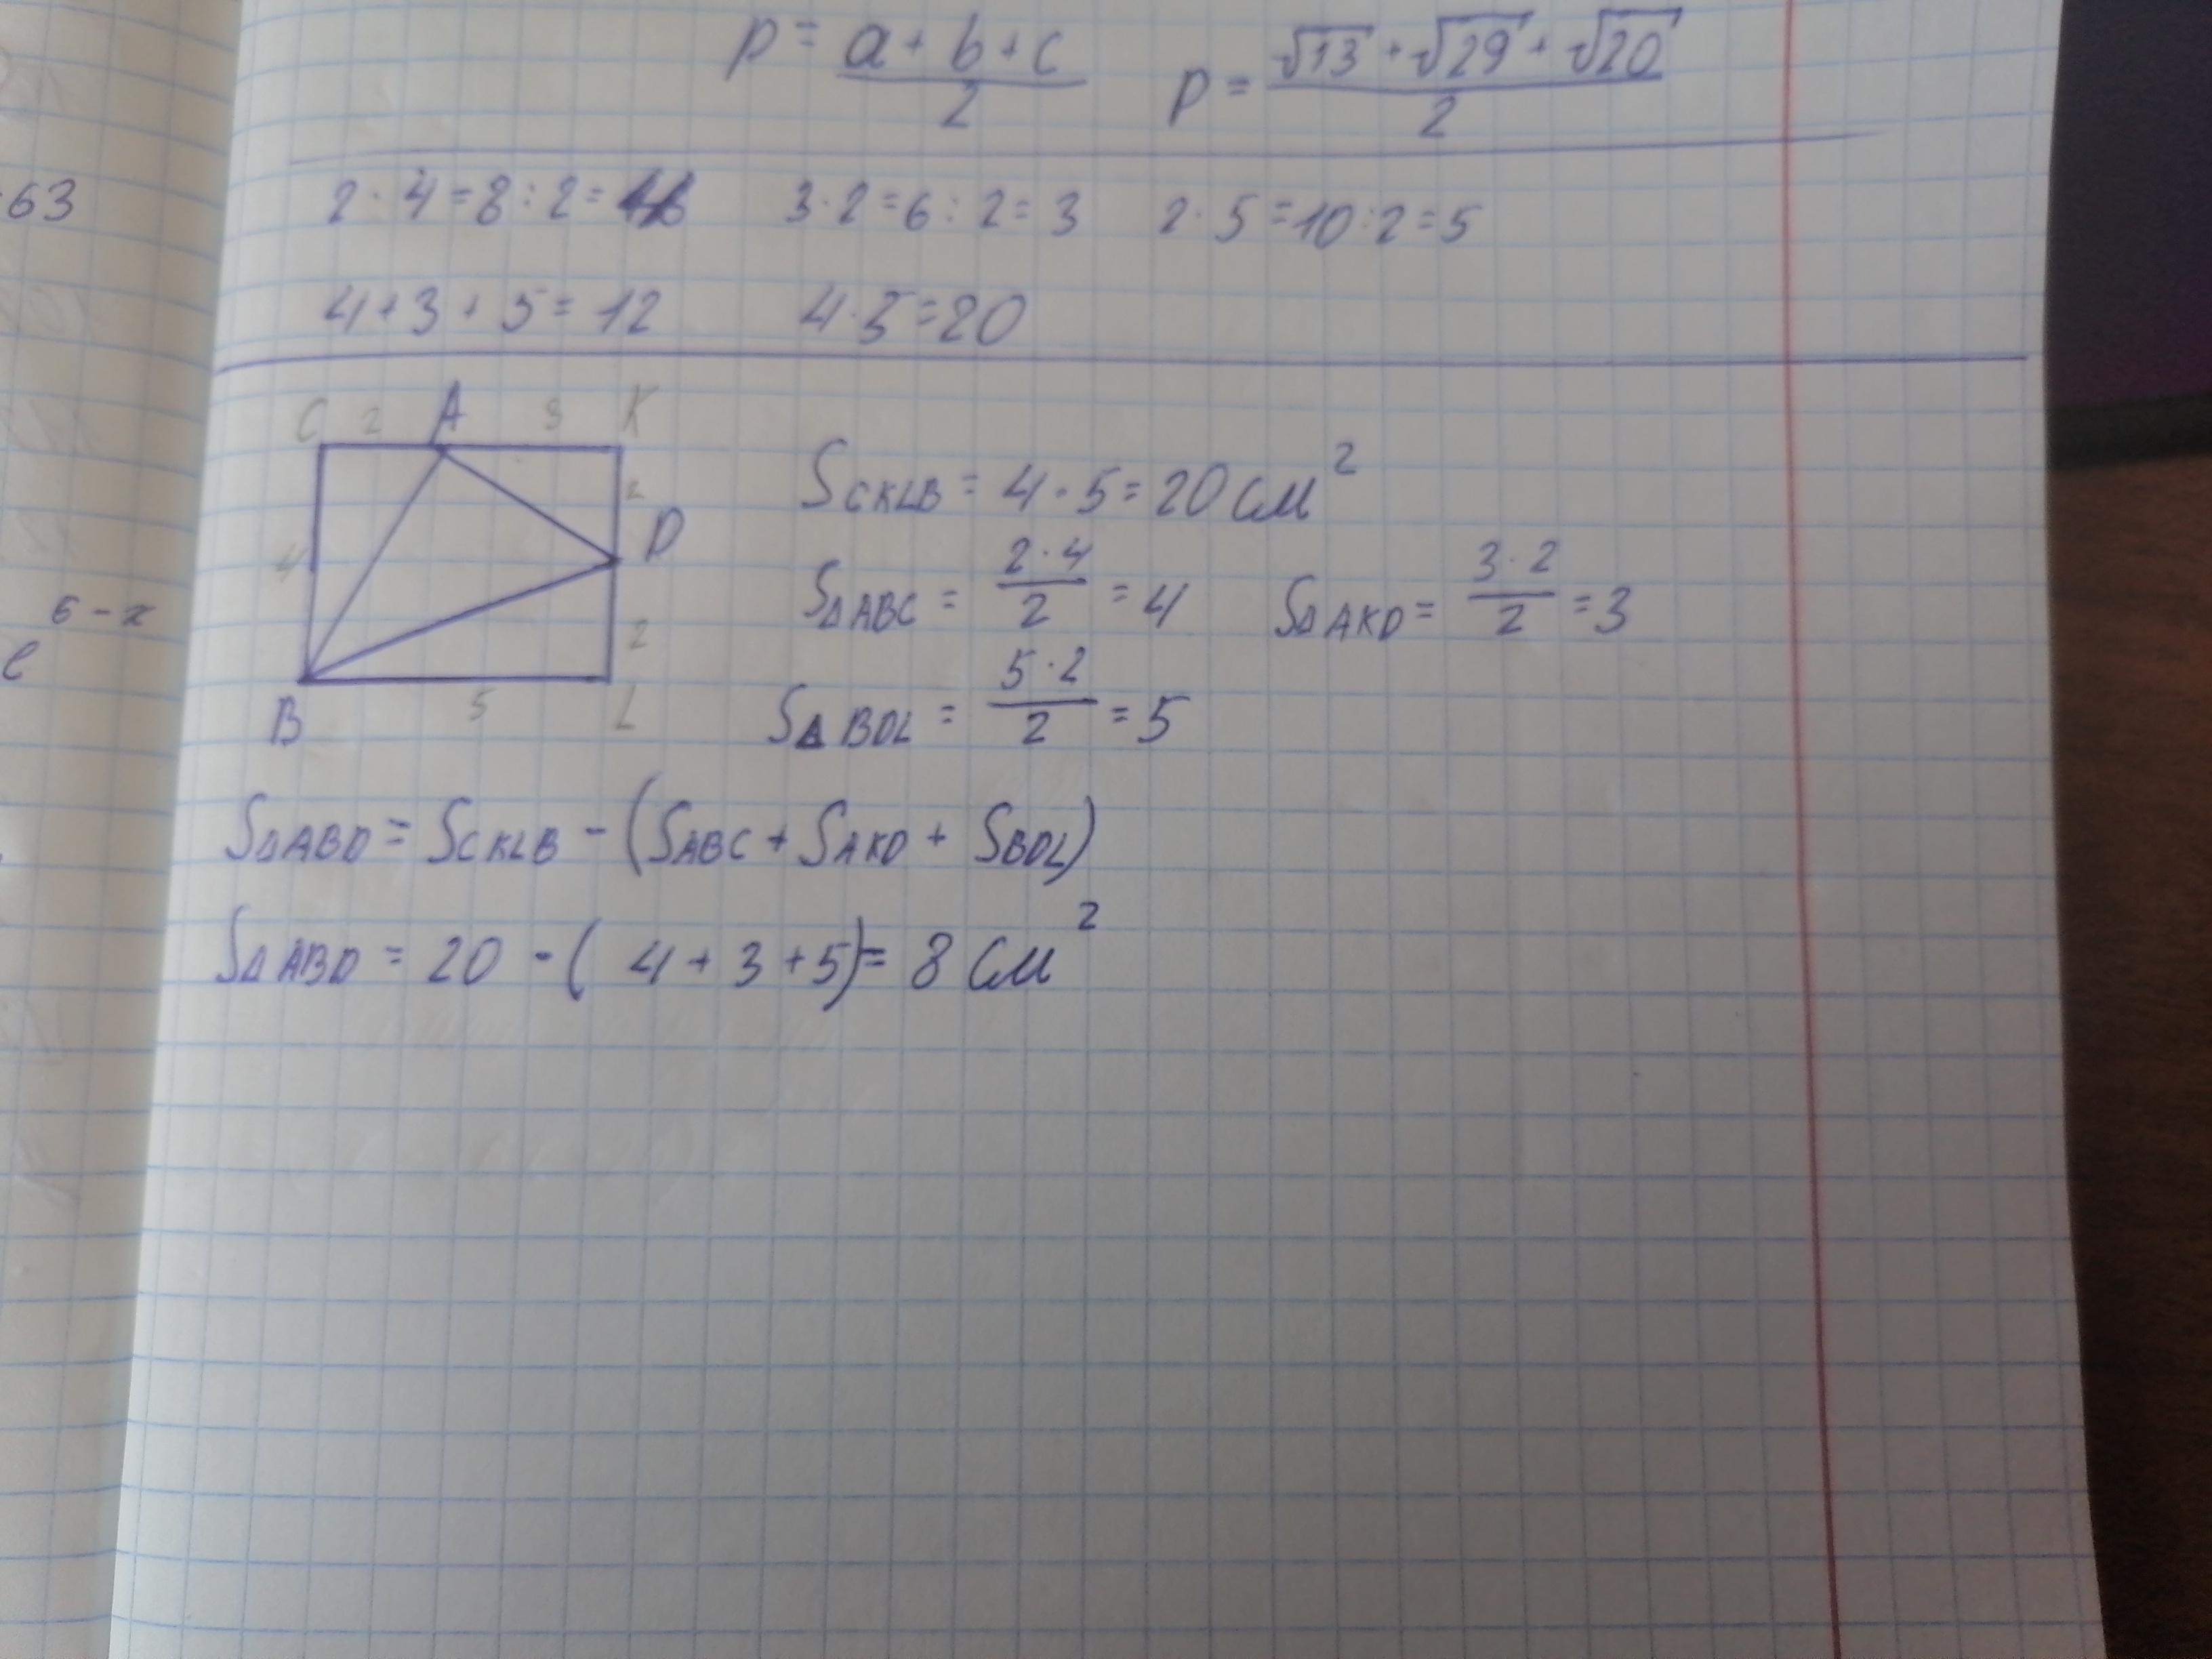 p = (a + b + c)/2   p = (√13 + √29 + √20)/2
63
2 · 4 = 8 : 2 =   3 · 2 = 6 : 2 = 3   2 · 5 = 10 : 2 = 5
4 + 3 + 5 = 12   4 · 5 = 20
C 2 A 3 K
2
D
4
2
B 5 L
S CKLB = 4 · 5 = 20 см²
S△ABC = (2 · 4)/2 = 4   S△AKD = (3 · 2)/2 = 3
S△BDL = (5 · 2)/2 = 5
e^(6 - x)
S△ABD = S CKLB - (S ABC + S AKD + S BDL)
S△ABD = 20 - (4 + 3 + 5) = 8 см²